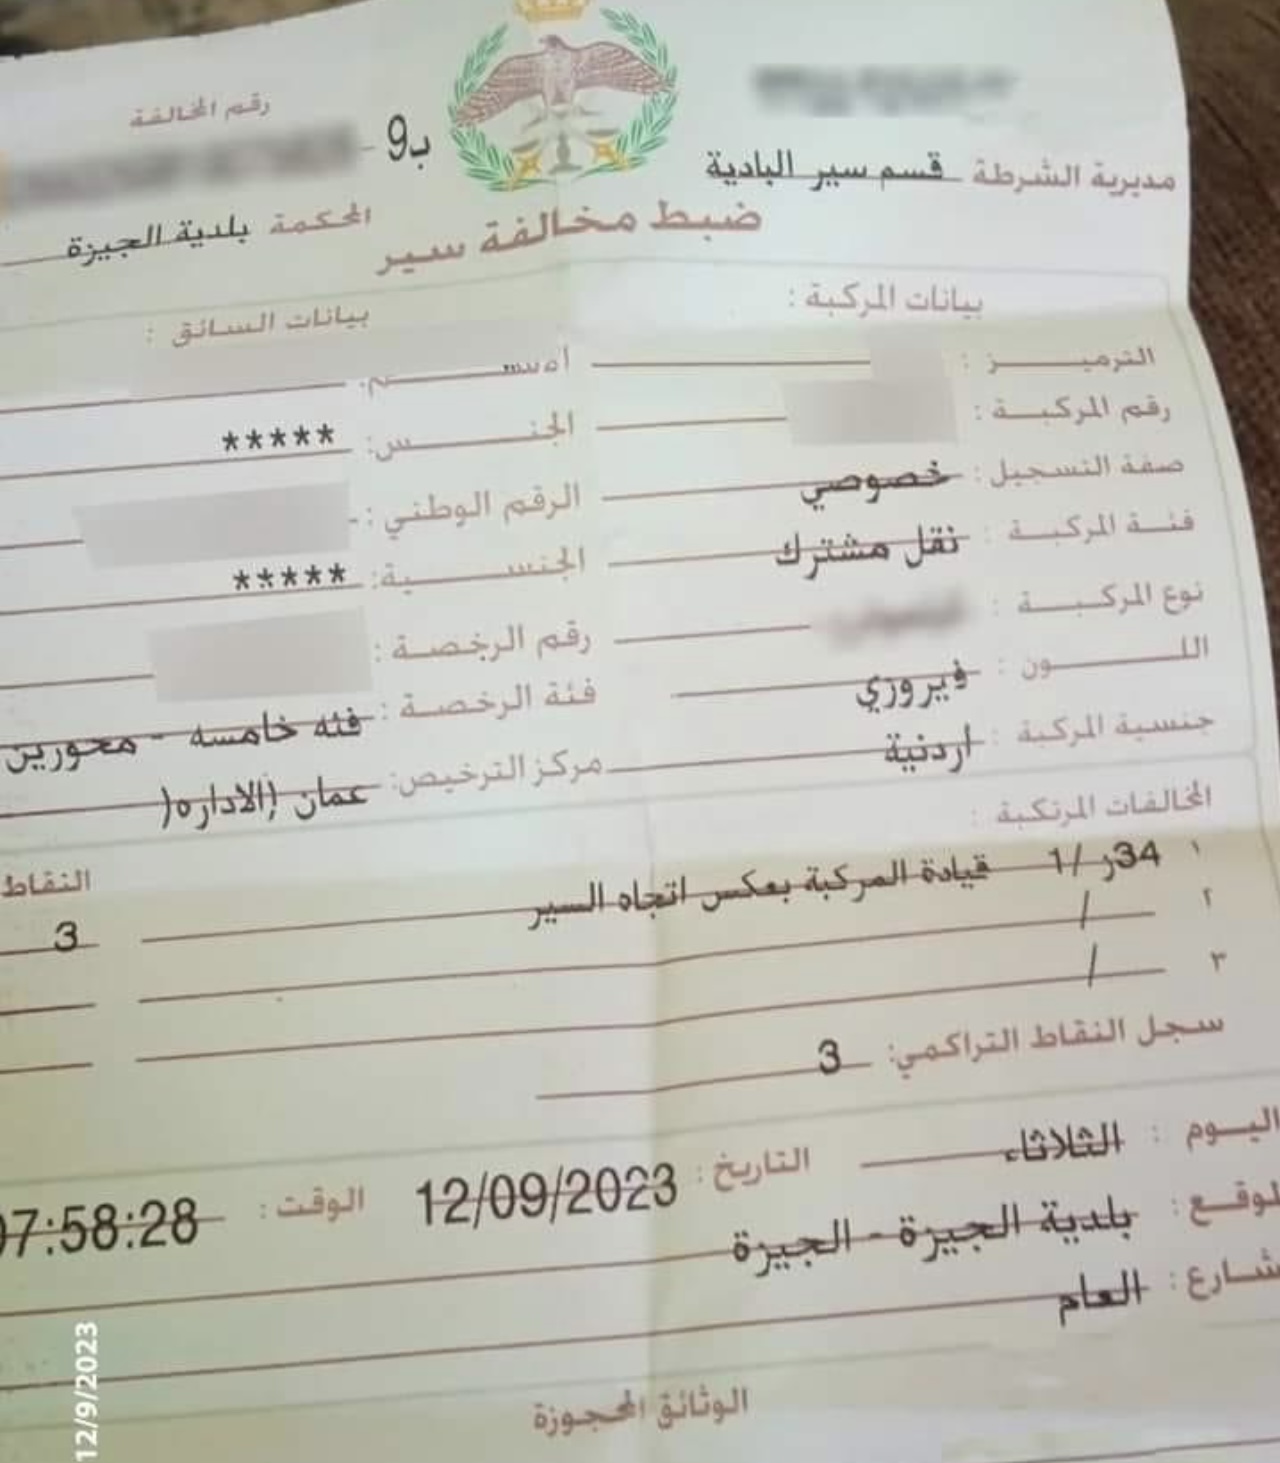 رقم المخالفة
ب9
مديرية الشرطة قسم سير البادية
المحكمة بلدية الجيزة
ضبط مخالفة سير
بيانات المركبة :
الترميـــز :
رقم المركبـــة :
صفة التسجيل : خصوصي
فئـــة المركبـــة : نقل مشترك
نوع المركبـــة :
اللـــــون : فيروزي
جنسية المركبة : اردنية
بيانات السائق :
الاســـــم :
الجنـــــس : *****
الرقم الوطني : -
الجنســـــية : *****
رقم الرخصـــة :
فئة الرخصـــة : فئه خامسه - محورين
مركز الترخيص: عمان (الاداره(
المخالفات المرتكبة :
النقاط
١ 34ز /1 قيادة المركبة بعكس اتجاه السير 3
٢ /
٣ /
سجل النقاط التراكمي: 3
اليـــوم : الثلاثاء التاريخ : 12/09/2023 الوقت : 07:58:28
لوقـــع : بلدية الجيزة - الجيزة
شـــارع : العام
الوثائق المحجوزة
12/9/2023